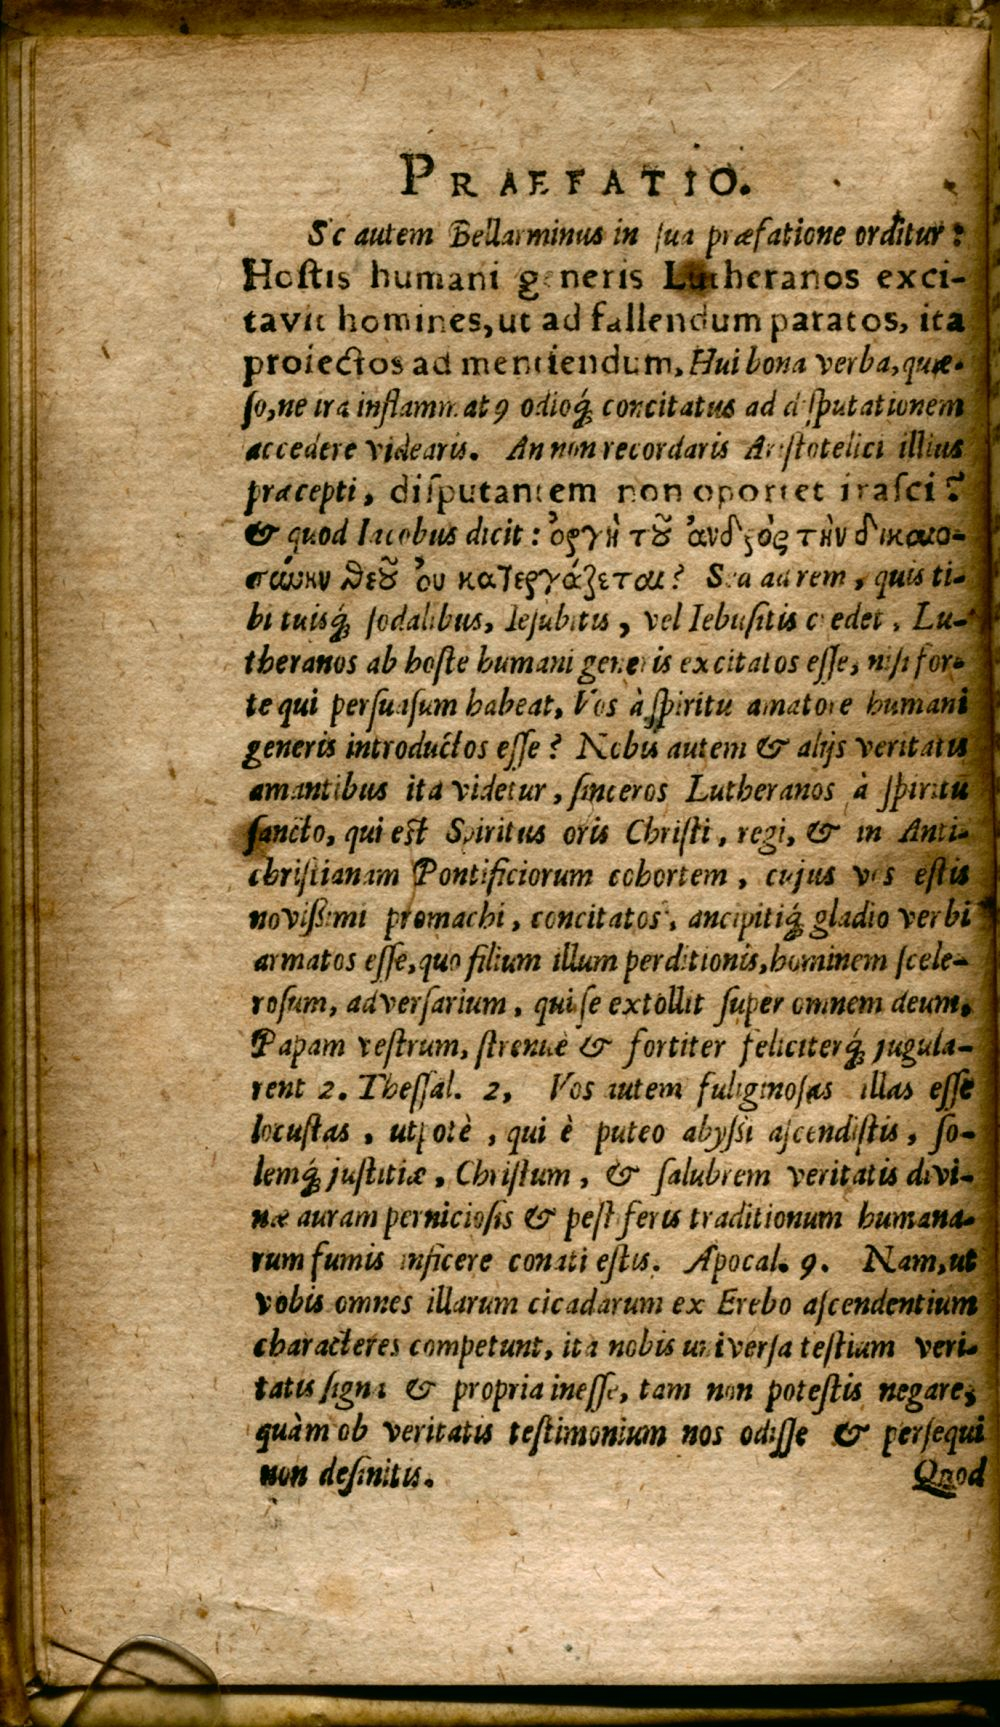 PRAEFATIO.
Sic autem Bellarminus in ſua præfatione orditur:
Hoſtis humani generis Lutheranos exci-
tavit homines, ut ad fallendum paratos, ita
proiectos ad mentiendum, Hui bona verba, quæ-
ſo, ne ira inflammatꝰ odioq́; concitatus ad diſputationem
accedere videaris. An non recordaris Ariſtotelici illius
præcepti, diſputantem non oportet iraſci?
& quod Iacobus dicit: ὀργὴ τοῦ ἀνδρὸς τὴν δικαιο-
σύνην θεοῦ ὀυ κατεργάζεται? Sed ad rem, quis ti-
bi tuisq́; ſodalibus, Ieſubitis, vel Iebuſitis credet, Lu-
theranos ab hoſte humani generis excitatos eſſe, niſi for-
te qui perſuaſum habeat, Vos à ſpiritu amatore humani
generis introductos eſſe? Nobis autem & alijs veritatis
amantibus ita videtur, ſinceros Lutheranos à ſpiritu
ſancto, qui eſt Spiritus oris Chriſti, regi, & in Anti-
chriſtianam Pontificiorum cohortem, cujus vos eſtis
novißimi promachi, concitatos, ancipitiq́; gladio verbi
armatos eſſe, quo filium illum perditionis, hominem ſcele-
roſum, adverſarium, qui ſe extollit ſuper omnem deum,
Papam veſtrum, ſtrenuè & fortiter feliciterq́; jugula-
rent 2. Theſſal. 2, Vos autem fuliginoſas illas eſſe
locuſtas, utpotè, qui è puteo abyßi aſcendiſtis, ſo-
lemq́; juſtitiæ, Chriſtum, & ſalubrem veritatis divi-
næ auram pernicioſis & peſtiferis traditionum humana-
rum fumis inficere conati eſtis. Apocal. 9. Nam, ut
vobis omnes illarum cicadarum ex Erebo aſcendentium
characteres competunt, ita nobis univerſa teſtium veri-
tatis ſigna & propria ineſſe, tam non poteſtis negare,
quàm ob veritatis teſtimonium nos odiſſe & perſequi
non deſinitis.
Quod